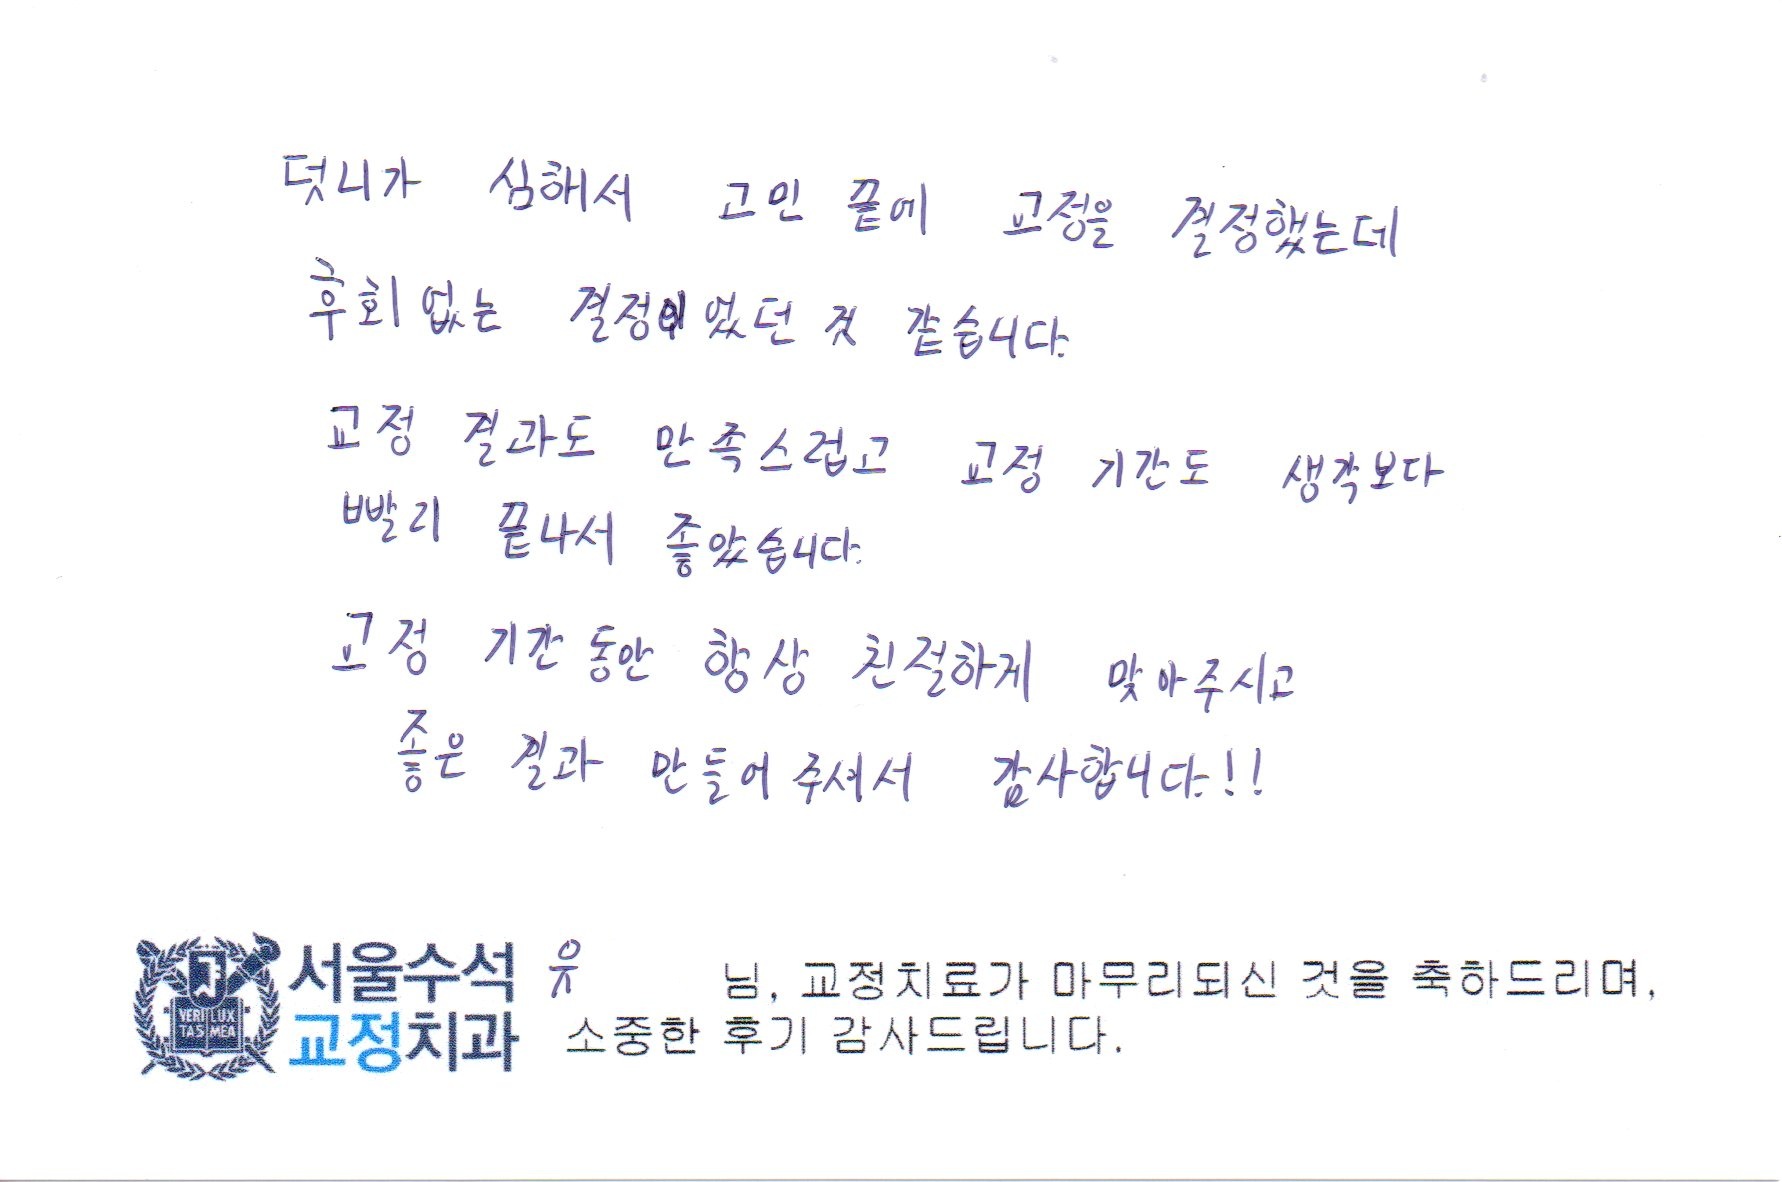 덧니가 심해서 고민 끝에 교정을 결정했는데
후회없는 결정이었던 것 같습니다.
교정 결과도 만족스럽고 교정 기간도 생각보다
빨리 끝나서 좋았습니다.
교정 기간동안 항상 친절하게 맞아주시고
좋은 결과 만들어주셔서 감사합니다!!
VERI LUX
TAS MEA
서울수석
교정치과
유 님, 교정치료가 마무리되신 것을 축하드리며,
소중한 후기 감사드립니다.